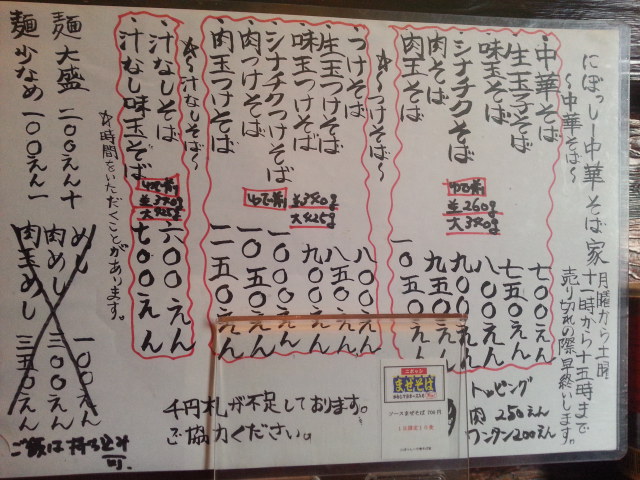 にぼっしー中華そば家
月曜から土曜
十一時から十五時まで
売り切れの際早終いします。
～中華そば～
・中華そば 七〇〇えん
・生玉子そば 七五〇えん
・味玉そば 八〇〇えん
・シナチクそば 九〇〇えん
・肉そば 九五〇えん
・肉玉そば 一〇五〇えん
ゆで前
並260g
大390g
☆～つけそば～
・つけそば 八〇〇えん
・生玉つけそば 八五〇えん
・味玉つけそば 九〇〇えん
・シナチクつけそば 一〇〇〇えん
・肉つけそば 一〇五〇えん
・肉玉つけそば 一一五〇えん
ゆで前
並390g
大525g
☆～汁なしそば～
・汁なしそば 六〇〇えん
・汁なし味玉そば 七〇〇えん
ゆで前
並390g
大525g
☆時間をいただくことがあります。
麺大盛 二〇〇えん＋
麺少なめ 一〇〇えん－
めし 一〇〇えん
肉めし 三〇〇えん
肉玉めし 三五〇えん
ご飯は持ち込み
可.
千円札が不足しております。
ご協力ください。
まぜそば
ソースまぜそば 700円
トッピング
肉 250えん
ワンタン200えん